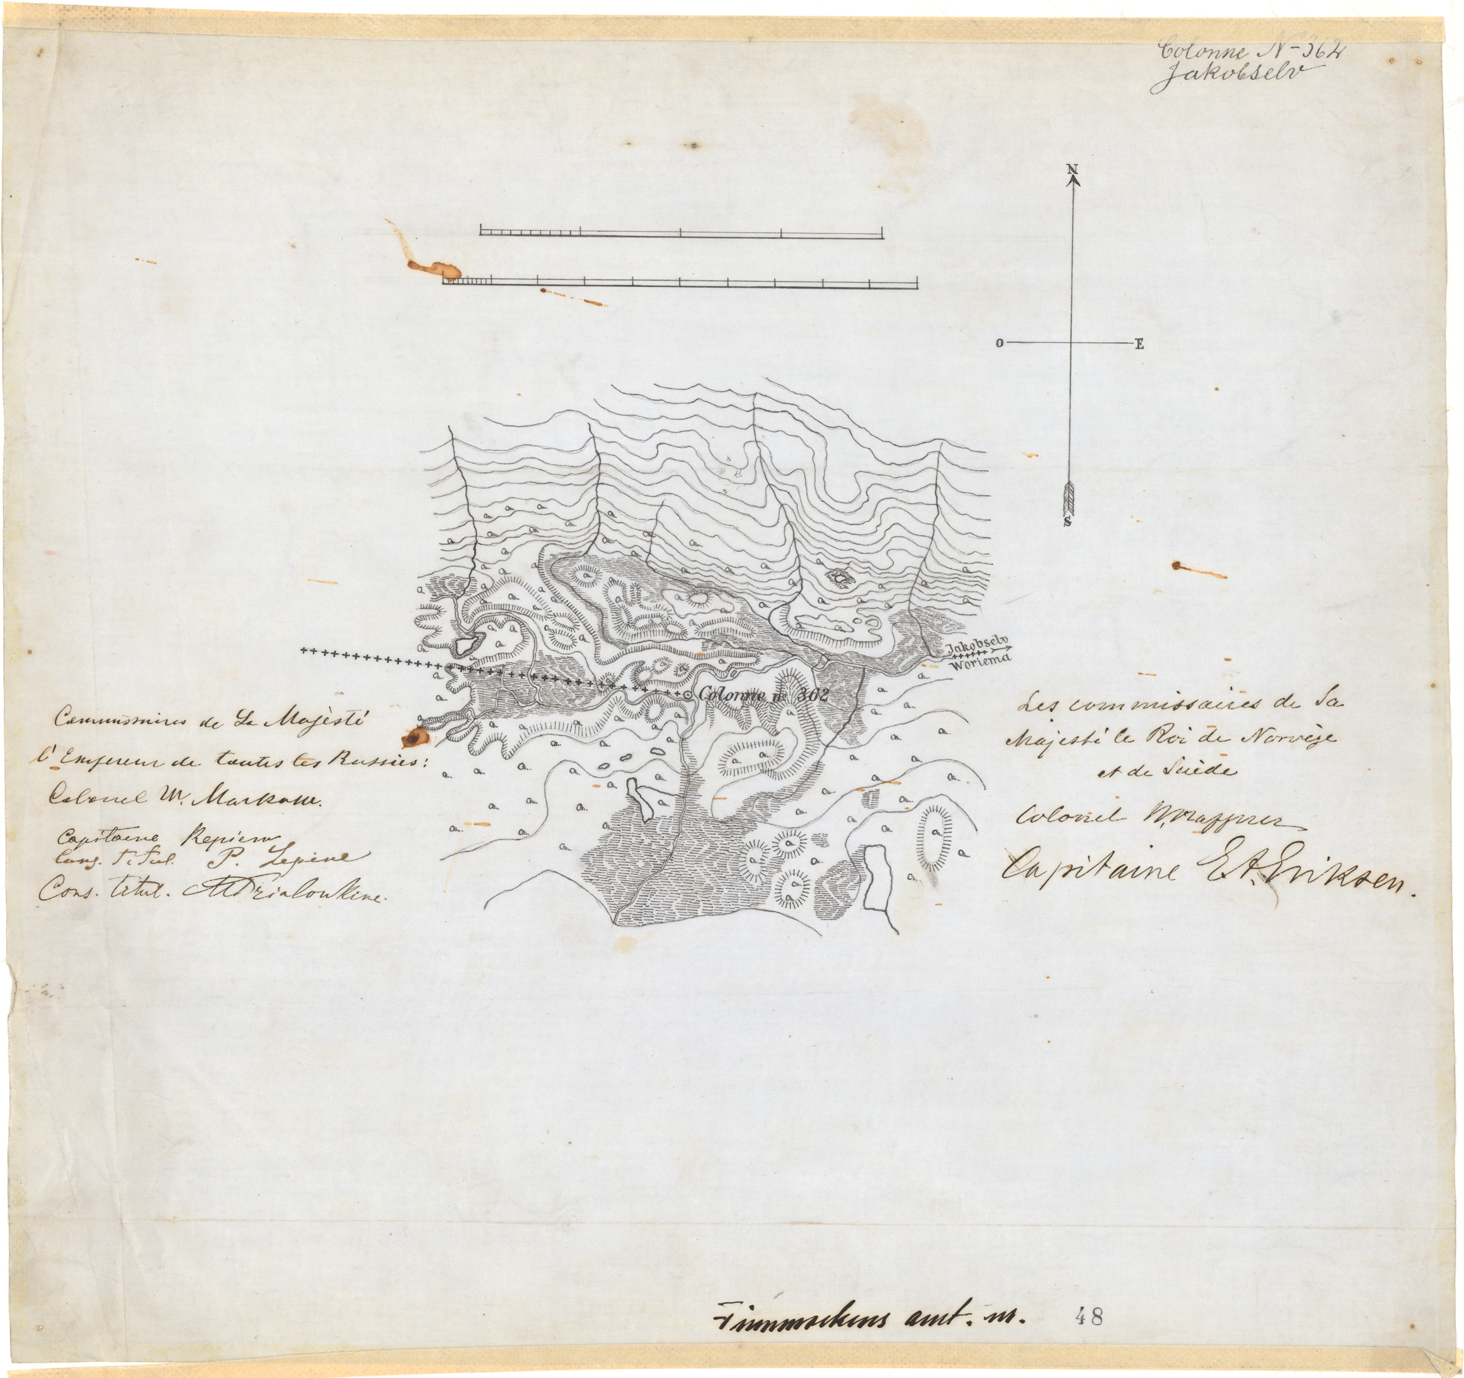 Colonne N- 362
Jakobselv
N
O E
S
Jakobselv
Woriema
Colonne nr 362
Commissaires de Sa Majésté
l'Empereur de toutes les Russies:
Colonel
Capitaine
Cons. Titul. P. Lepine
Cons. titul.
Les commissaires de Sa
Majesté le Roi de Norvège
et de Suède
Colonel
Capitaine E A. Eriksen.
Finmarkens amt. nr. 48